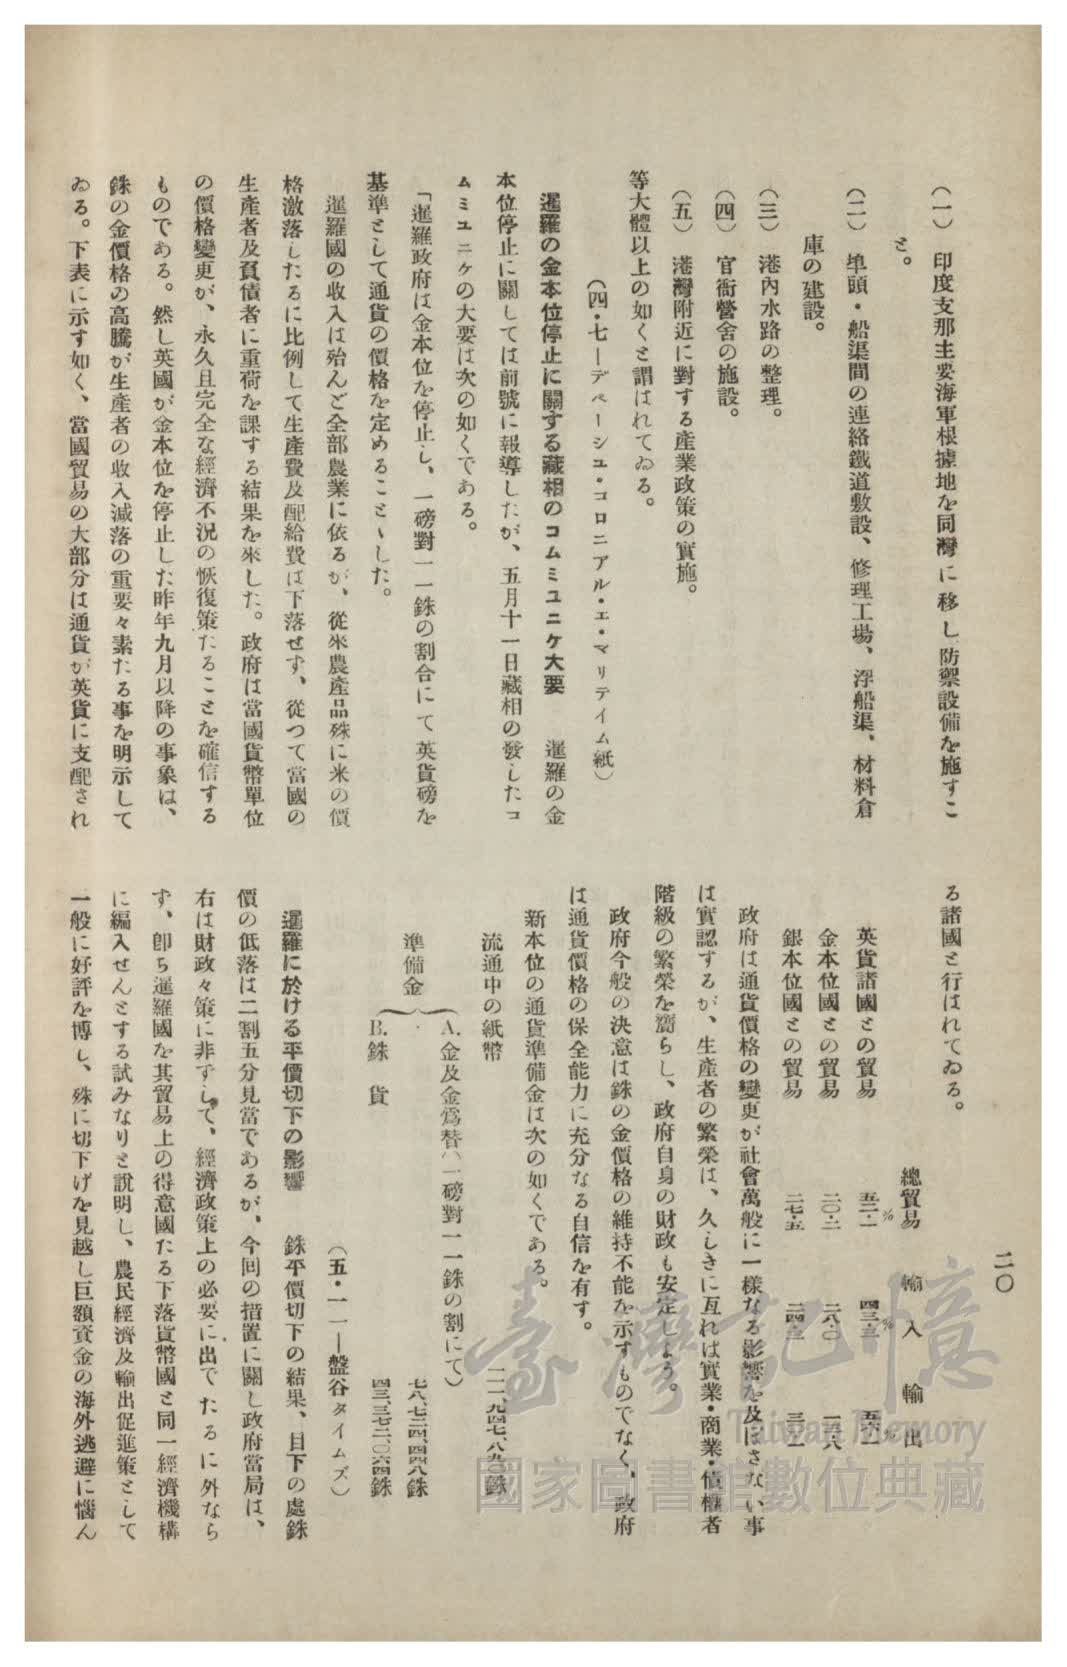 二〇
(一) 印度支那主要海軍根據地を同灣に移し防禦設備を施すこ
と。
(二) 埠頭・船渠間の連絡鐵道敷設、修理工場、浮船渠、材料倉
庫の建設。
(三) 港內水路の整理。
(四) 官衙營舍の施設。
(五) 港灣附近に對する産業政策の實施。
等大體以上の如くと謂はれてゐる。
(四・七―デペーシユ・コロニアル・エ・マリテイム紙)
暹羅の金本位停止に關する藏相のコムミユニケ大要 暹羅の金
本位停止に關しては前號に報導したが、五月十一日藏相の發したコ
ムミユニケの大要は次の如くである。
「暹羅政府は金本位を停止し、一磅對一一銖の割合にて英貨磅を
基準として通貨の價格を定めることゝした。
暹羅國の收入は殆んど全部農業に依るが、從來農產品殊に米の價
格激落したるに比例して生產費及配給費は下落せず、從つて當國の
生產者及負債者に重荷を課する結果を來した。政府は當國貨幣單位
の價格變更が、永久且完全な經濟不況の恢復策たることを確信する
ものである。然し英國が金本位を停止した昨年九月以降の事象は、
銖の金價格の高騰が生產者の收入減落の重要々素たる事を明示して
ゐる。下表に示す如く、當國貿易の大部分は通貨が英貨に支配され
る諸國と行はれてゐる。
總貿易 輸入 輸出
% % %
英貨諸國との貿易 五二・一
金本位國との貿易 二〇・二 二八・〇
銀本位國との貿易 二七・五
政府は通貨價格の變更が社會萬般に一樣なる影響を及ぼさない事
は實認するが、生產者の繁榮は、久しきに亙れば實業・商業・債權者
階級の繁榮を齎らし、政府自身の財政も安定しよう。
政府今般の決意は銖の金價格の維持不能を示すものでなく、政府
は通貨價格の保全能力に充分なる自信を有す。
新本位の通貨準備金は次の如くである。
流通中の紙幣 一一一、九四七、八九〇銖
準備金
A. 金及金爲替(一磅對一一銖の割にて) 七八、七二四、四四八銖
B. 銖貨 四三、三七二、〇六四銖
(五・一一―盤谷タイムズ)
暹羅に於ける平價切下の影響 銖平價切下の結果、目下の處銖
價の低落は二割五分見當であるが、今回の措置に關し政府當局は、
右は財政々策に非ずして、經濟政策上の必要に出でたるに外なら
ず、卽ち暹羅國を其貿易上の得意國たる下落貨幣國と同一經濟機構
に編入せんとする試みなりと說明し、農民經濟及輸出促進策として
一般に好評を博し、殊に切下げを見越し巨額資金の海外逃避に惱ん
臺灣記憶
Taiwan Memory
國家圖書館數位典藏